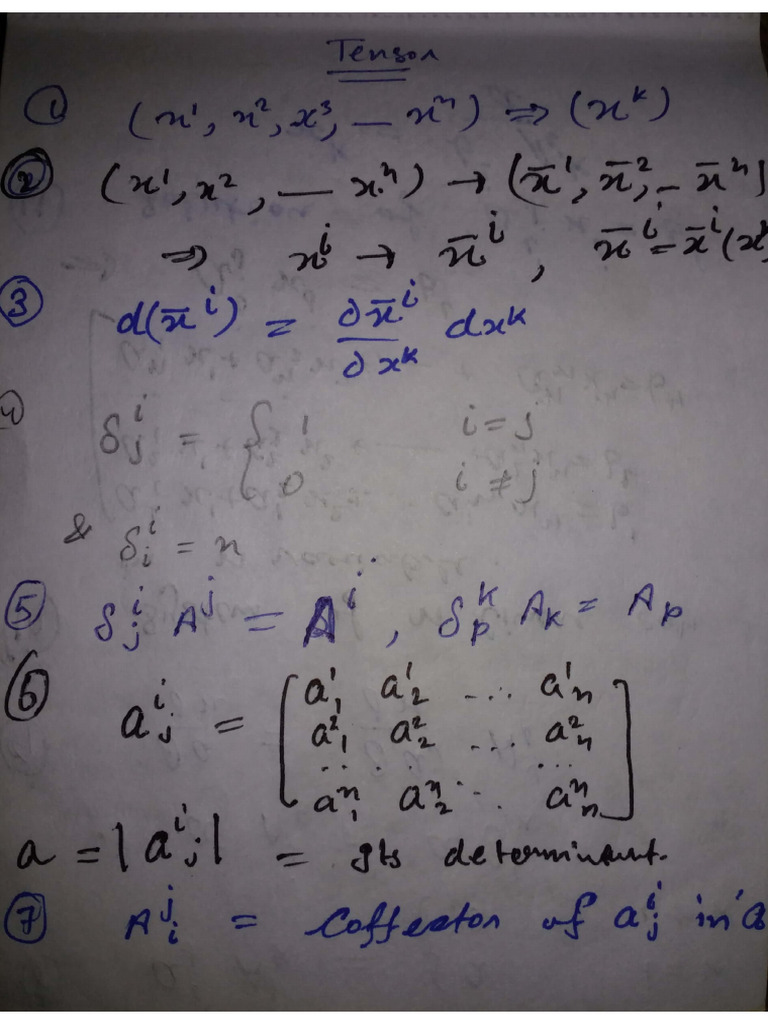 Tensor
① (x¹, x², x³, — xⁿ) ⇒ (xᵏ)
② (x¹, x², — xⁿ) → (x̄¹, x̄², – x̄ⁿ)
⇒ xⁱ → x̄ⁱ, x̄ⁱ = x̄ⁱ(x
③ d(x̄ⁱ) = ∂x̄ⁱ/∂xᵏ dxᵏ
4 δⁱⱼ = { 1 i = j
0 i ≠ j
& δⁱᵢ = n
⑤ δⁱⱼ Aʲ = Aⁱ, δᵏₚ Aₖ = Aₚ
⑥ aⁱⱼ = [ a¹₁ a¹₂ ... a¹ₙ
a²₁ a²₂ ... a²ₙ
... ... ...
aⁿ₁ aⁿ₂ ... aⁿₙ ]
a = |aⁱⱼ| = Its determintant.
⑦ Aʲᵢ = Coffector of aⁱⱼ in